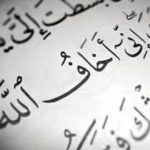 بَسَطتَ إِلَىَّ
إِنِّىٓ أَخَافُ ٱللَّهَ